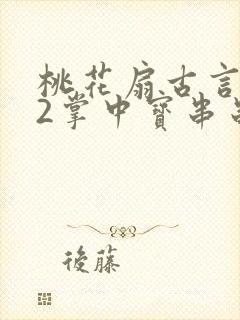 桃花扇古言
2掌中寳串
後藤